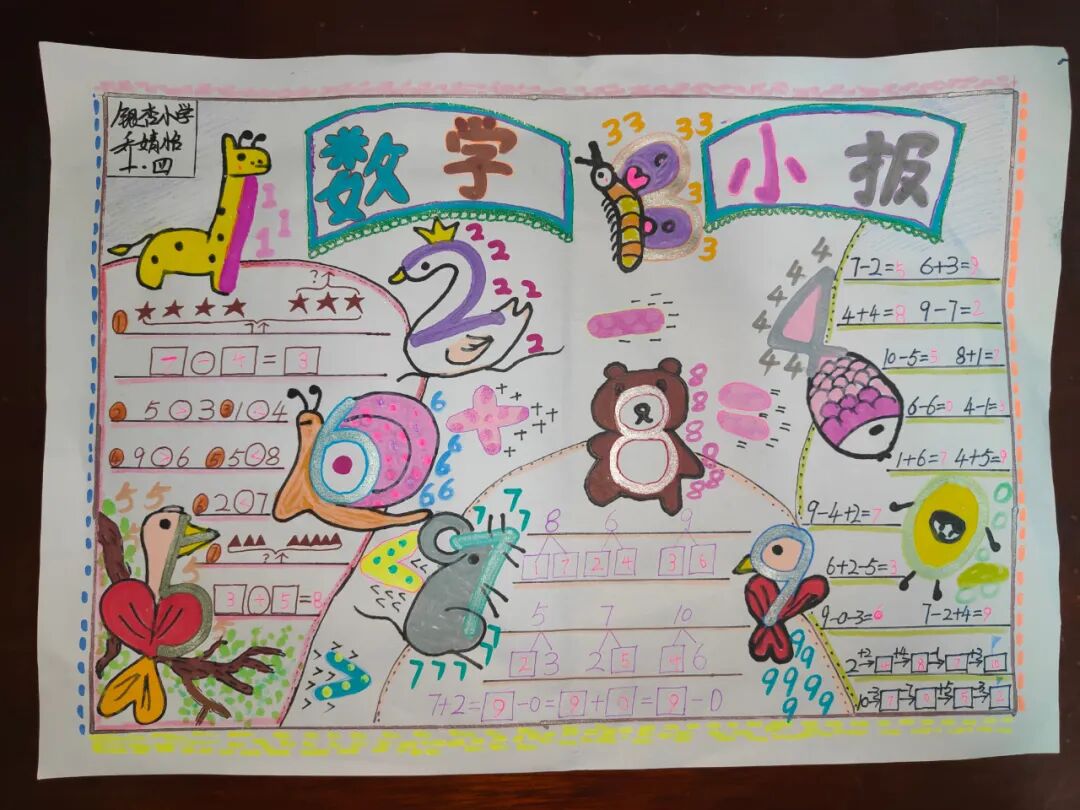 银杏小学
乔婧怡
一·四
数学
小报
1 1 1
2 2 2 2 2
33 33 3 3
4 4 4 4 4 4
?
① ★★★★ ★★★
?
□-4=3
② 5○3 ③ 1○4
④ 9○6 ⑤ 5○8
⑥ 2○7
?
3+5=8
55 5 5
6 6 6 6 66
7 7 7 7 7 7
8 8 8 8 8 8 88
99 9999 9
+ + + + + +
- - - -
= = = = =
< < < < <
> > > > >
8 6 9
1 7 2 4 3 6
5 7 10
2 3 2 5 4 6
7+2=9-0=9+0=9-0
7-2=5 6+3=9
4+4=8 9-7=2
10-5=5 8+1=9
6-6=0 4-1=3
1+6=7 4+5=9
9-4+2=7
6+2-5=3
9-0-3=6 7-2+4=9
2 +2→ 4 +4→ 8 -1→ 7 +3→ 10
10 -3→ 7 -7→ 0 +5→ 5 -3→ 2